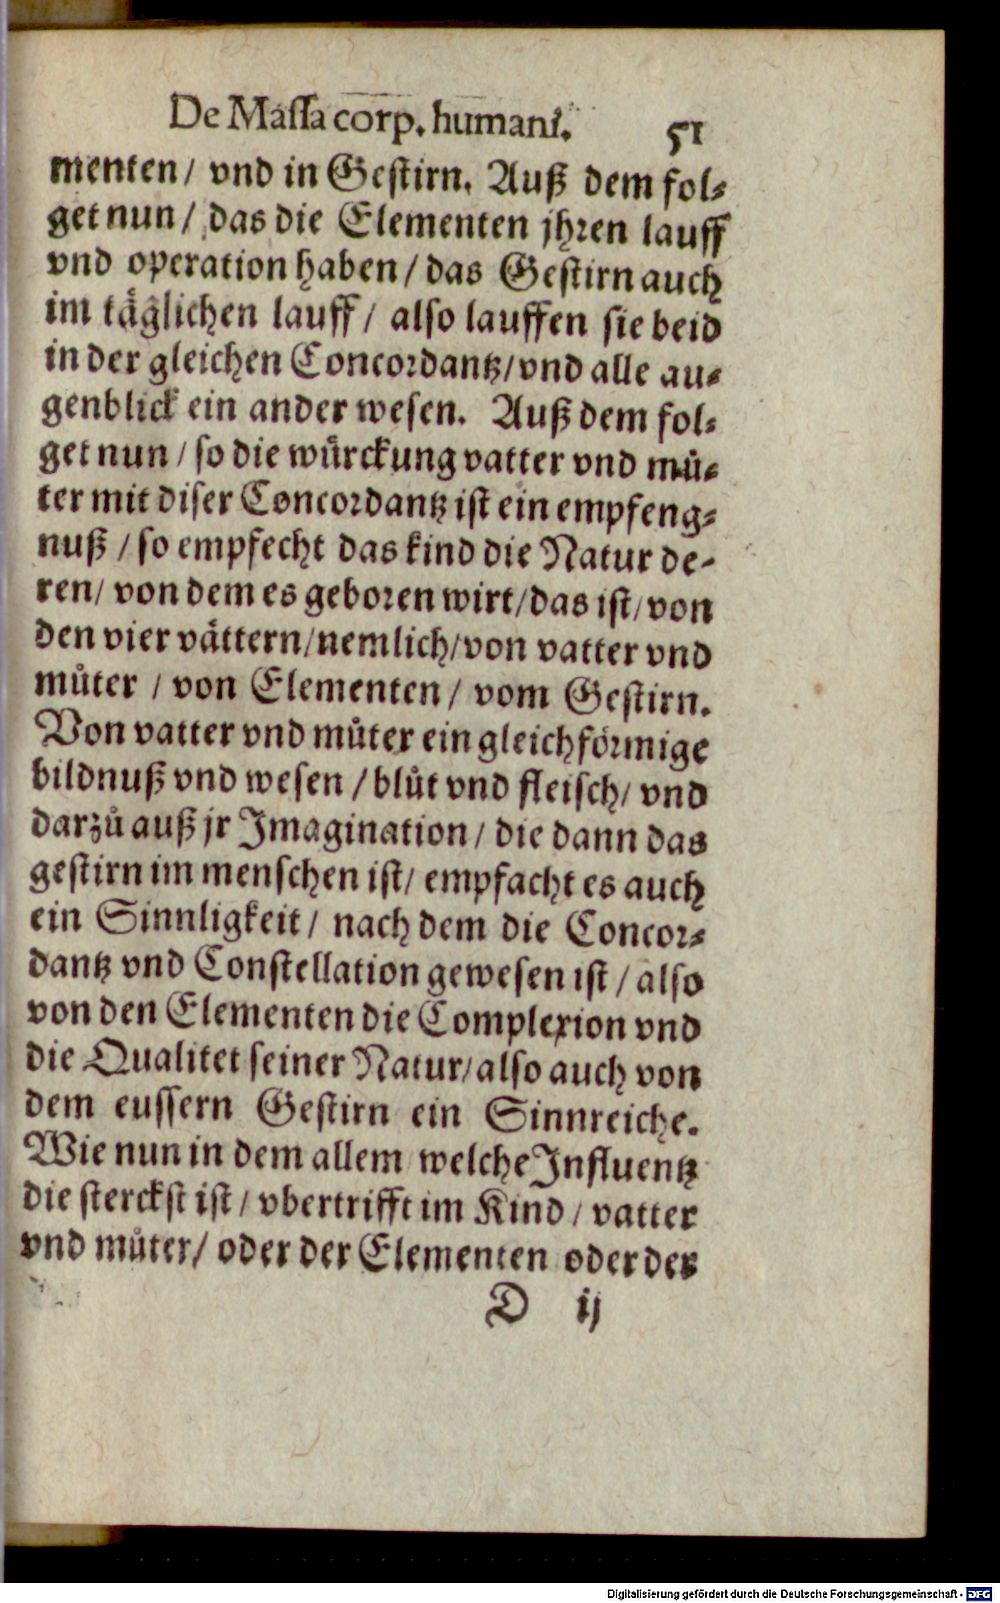 De Massa corp. humani. 51
menten/ vnd in Gestirn. Auß dem fol-
get nun/ das die Elementen jhren lauff
vnd operation haben/ das Gestirn auch
im täglichen lauff/ also lauffen sie beid
in der gleichen Concordantz/ vnd alle au-
genblick ein ander wesen. Auß dem fol-
get nun/ so die würckung vatter vnd mů-
ter mit diser Concordantz ist ein empfeng-
nuß/ so empfecht das kind die Natur de-
ren/ von dem es geboren wirt/ das ist/ von
den vier vättern/ nemlich/ von vatter vnd
můter/ von Elementen/ vom Gestirn.
Von vatter vnd můter ein gleichförmige
bildnuß vnd wesen/ blůt vnd fleisch/ vnd
darzů auß jr Imagination/ die dann das
gestirn im menschen ist/ empfacht es auch
ein Sinnligkeit/ nach dem die Concor-
dantz vnd Constellation gewesen ist/ also
von den Elementen die Complexion vnd
die Qualitet seiner Natur/ also auch von
dem eussern Gestirn ein Sinnreiche.
Wie nun in dem allem welche Influentz
die sterckst ist/ vbertrifft im Kind/ vatter
vnd můter/ oder der Elementen oder des
D ij
Digitalisierung gefördert durch die Deutsche Forschungsgemeinschaft - DFG